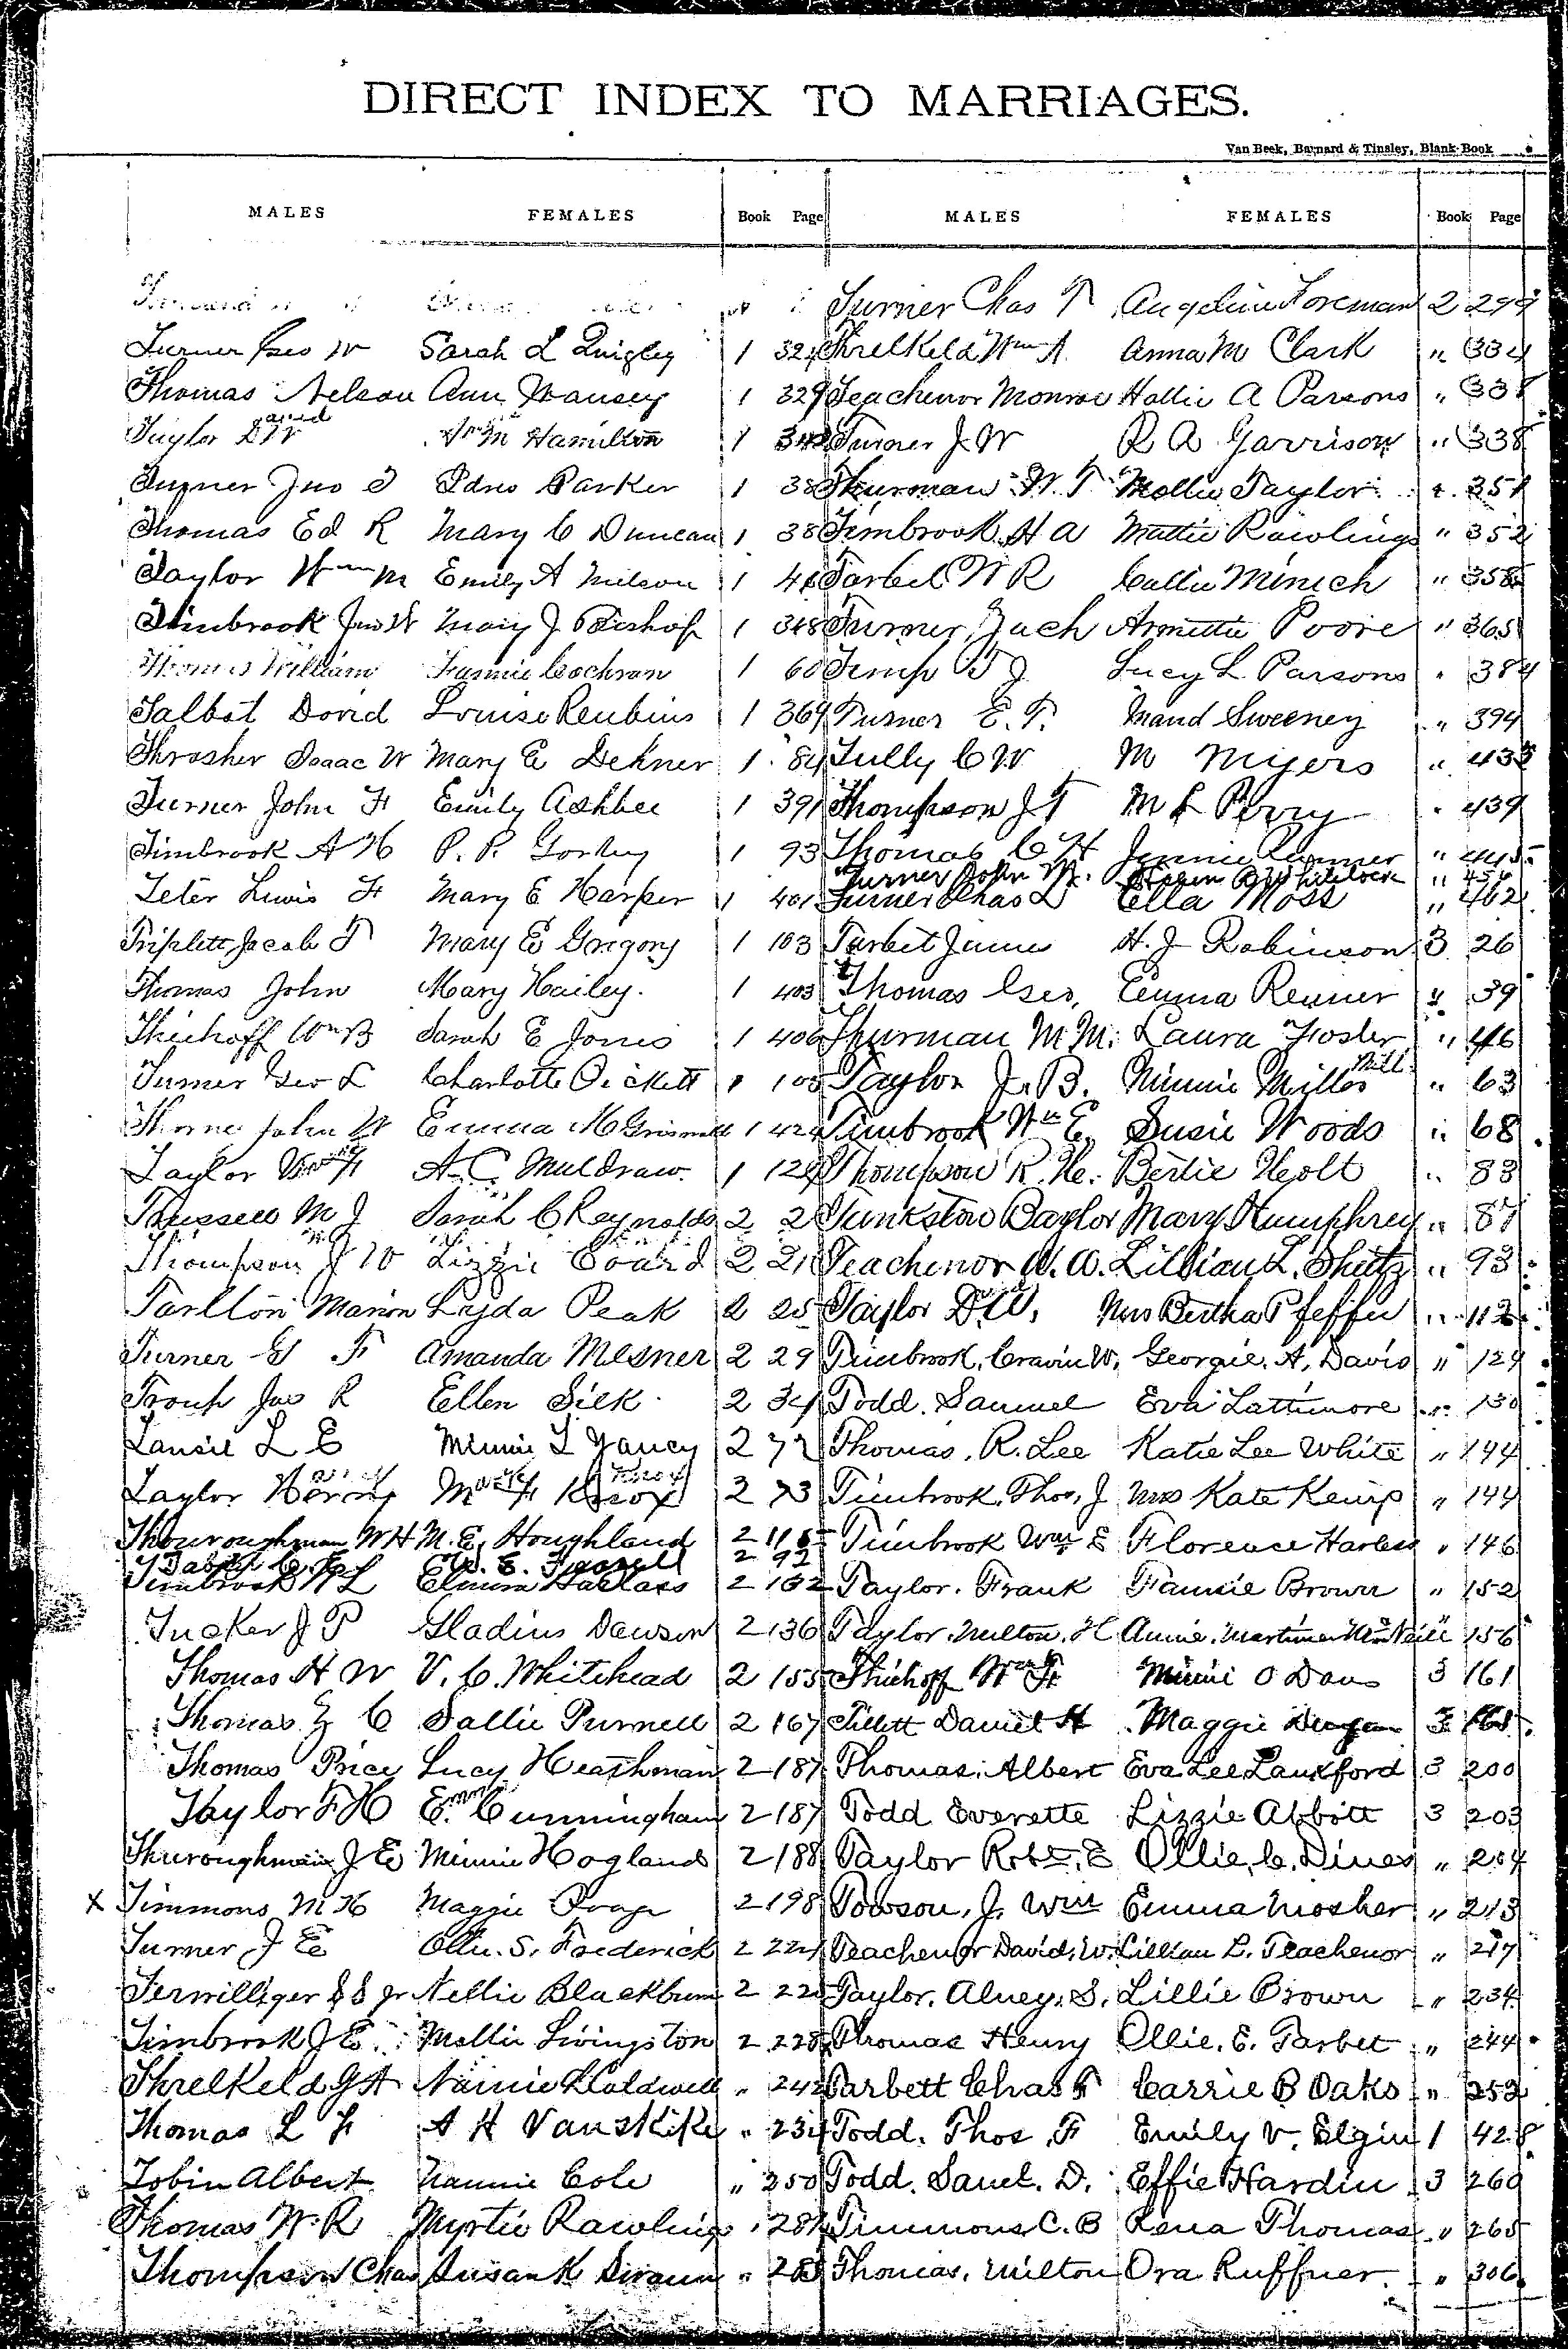 DIRECT INDEX TO MARRIAGES.
Van Beek, Barnard & Tinsley, Blank Book
MALES FEMALES Book Page MALES FEMALES Book Page
Turner Chas T Angeline Foreman 2 299
Turner Geo W Sarah L Quigley 1 Threlkeld Wm A. Anna M Clark " 334
Thomas Nelson Ann 1 329 Teachenor Monroe Hallie A Parsons " 338
Taylor Hamilton 1 Turner J W R A Garrison " 338
Turner Jno Parker 1 38 Thurman W. T. Mollie Taylor 351
Thomas Ed R Mary C Duncan 1 38 Timbrook H A Mattie Rawlings " 352
Taylor Wm M Emily A 1 Tarbet W R Callie Minich " 358
Timbrook Jno W Mary J Bishop 1 348 Turner, Zach Poore " 365
Thomas William Fannie Cochran 1 60 Timp T J Lucy L Parsons " 384
Talbot David Louise Reubins 1 369 Turner E. T. Maud Sweeney " 394
Thrasher Isaac W Mary E Dekner 1 84 Tully C W M Myers " 433
Turner John H Emily Ashbee 1 391 Thompson J T M L Perry " 439
Timbrook A H P. P. 1 93 Thomas C H Jennie " 445
Turner John M. Whitelock " 456
Teter Lewis F Mary E Harper 1 401 Turner Chas L Ella Moss " 462
Triplett Jacob T Mary E Gregory 1 103 Tarbet James H. J Robinson 3 26
Thomas John Mary Hailey. 1 403 Thomas Geo. Emma Renner " 39
Thiehoff Wm B Sarah E Jones 1 406 Thurman M M. Laura Foster " 46
Turner Geo L Charlotte Pickett 1 Taylor J. B. Minnie Miller Mill. " 63
Thorne John W Emma 1 Timbrook Wm E. Susie Woods " 68
Taylor A. C. Muldraw. 1 Thompson R. H. Bertie Holt " 83
Trussell M J Sarah C Reynolds 2 2 Tunkston Baylor Mary Humphrey " 87
Thompson J W Lizzie 2 21 Teachenor W. A. Lillian L. Sheetz " 93
Tarlton Marion Lyda Peak 2 25 Taylor D W. Mrs Bertha Pfeffer " 112
Turner G F Amanda Mesner 2 29 Timbrook, Cravin W. Georgie. A. Davis " 129
Troup Jas R Ellen Silk 2 34 Todd. Samuel Eva Lattimore " 130
L E Minnie L Yancy 2 72 Thomas, R. Lee Katie Lee White " 144
Taylor Knox 2 73 Timbrook, Thos, J Mrs Kate Kemp " 144
Thouroughman W H M. E. Houghland 2 115 Timbrook Wm E Florence Harless " 146
2 92
Timbrook W L Harlass 2 132 Taylor. Frank Fannie Brown " 152
Tucker J P Gladius Dawson 2 136 Taylor. Milton. H Annie. " 156
Thomas H W V. C. Whitehead 2 155 Thiehoff Wm H Minnie O Davis 3 161
Thomas C Sallie Purnell 2 167 Tillett Daniel H Maggie 3
Thomas Price Lucy Heathman 2 187 Thomas. Albert Eva Lee Lankford 3 200
Taylor F H Emma Cunningham 2 187 Todd Everette Lizzie Abbott 3 203
Thuroughman J E Minnie Hogland 2 188 Taylor Robt. E Ollie. C. Dines " 204
X Timmons M H Maggie 2 198 Towson, J. Wm Emma Mosher " 213
Turner J E Ollie. S. Frederick 2 224 Teachenor David. W. Lillian L. Teachenor " 217
Terwilliger S S Jr Nellie Blackburn 2 225 Taylor. Alney. S. Lillie Brown " 234
Timbrook J E. Mollie Livingston 2 228 Thomas Henry Ollie. E. Tarbet " 244
Threlkeld G A Nannie L Caldwell " 242 Tarbett Chas F Carrie B Oaks " 252
Thomas L F A H Vanskike " 234 Todd. Thos F Emily V. Elgin 1 428
Tobin Albert Nannie Cole " 250 Todd. Saml. D. Effie Hardin 3 260
Thomas W. R Myrtie Rawlings " 287 Timmons C. B Rena Thomas " 265
Thompson Chas Susan K " Thomas, Milton Ora Ruffner. " 306